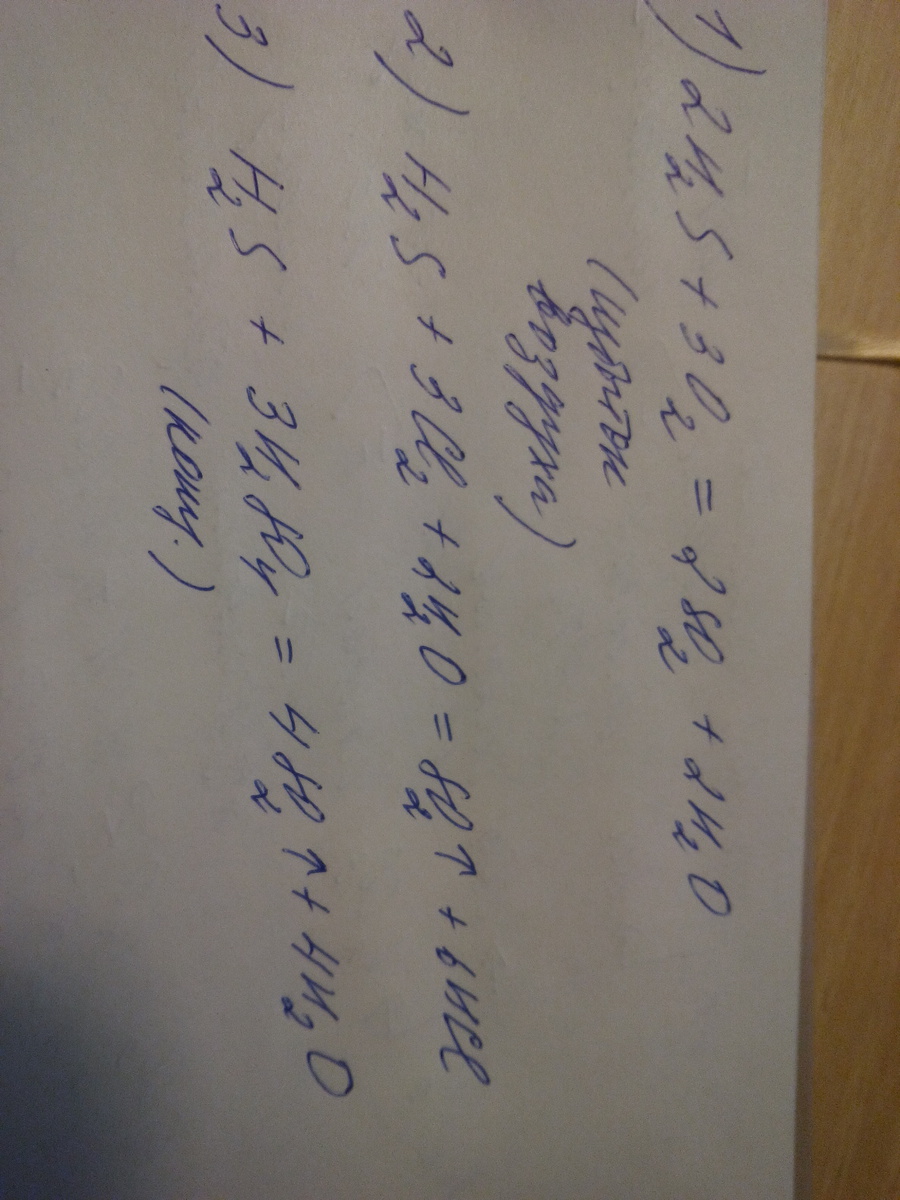 1) 2H₂S + 3O₂ = 2SO₂ + 2H₂O
(избыток
воздуха)
2) H₂S + 3Cl₂ + 2H₂O = SO₂↑ + 6HCl
3) H₂S + 3H₂SO₄ = 4SO₂↑ + 4H₂O
(конц.)